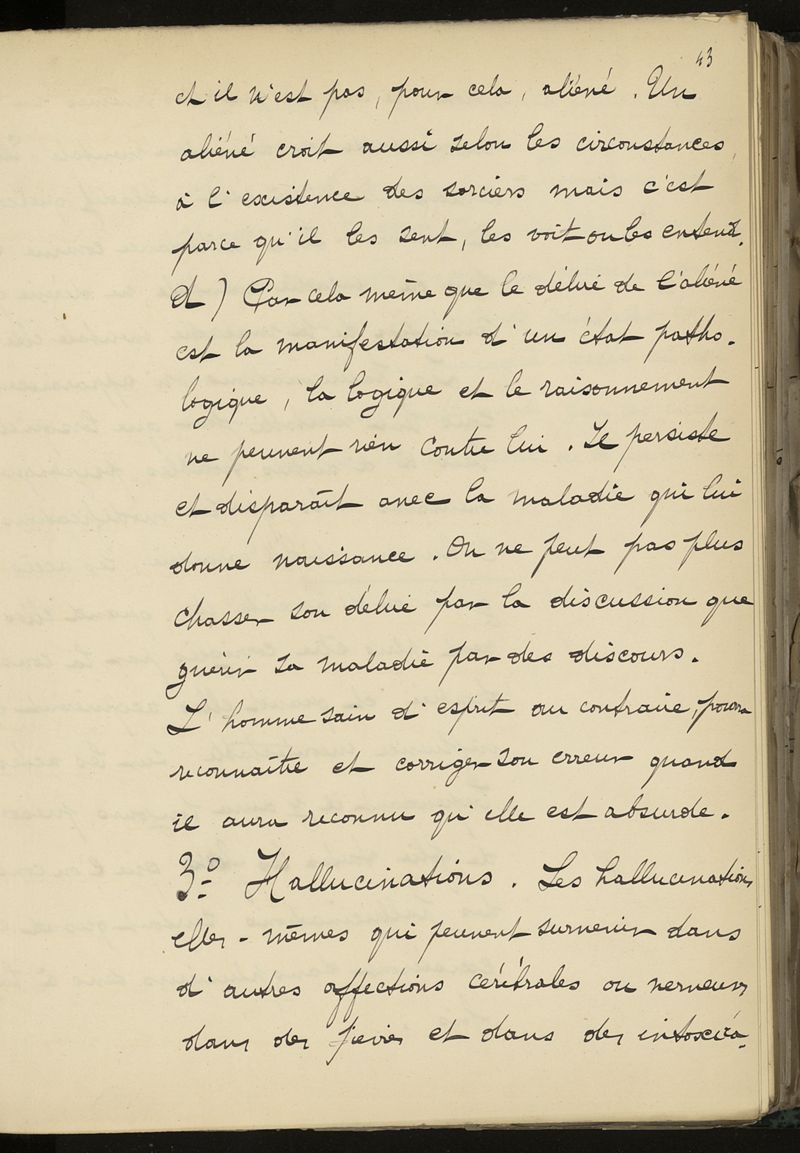 43
et il n'est pas, pour cela, aliéné. Un
aliéné croit aussi selon les circonstances,
à l'existence des sorciers mais c'est
parce qu'il les sent, les voit ou les entend.
d) Par cela même que le délire de l'aliéné
est la manifestation d'un état patho-
logique, la logique et le raisonnement
ne peuvent rien contre lui. Il persiste
et disparaît avec la maladie qui lui
donne naissance. On ne peut pas plus
chasser son délire par la discussion que
guérir sa maladie par des discours.
L'homme sain d'esprit au contraire, pourra
reconnaître et corriger son erreur quand
il aura reconnu qu'elle est absurde.
3º Hallucinations. Les hallucinations
elles-mêmes qui peuvent survenir dans
d'autres affections cérébrales ou nerveuses
dans des fièvres et dans des intoxica-